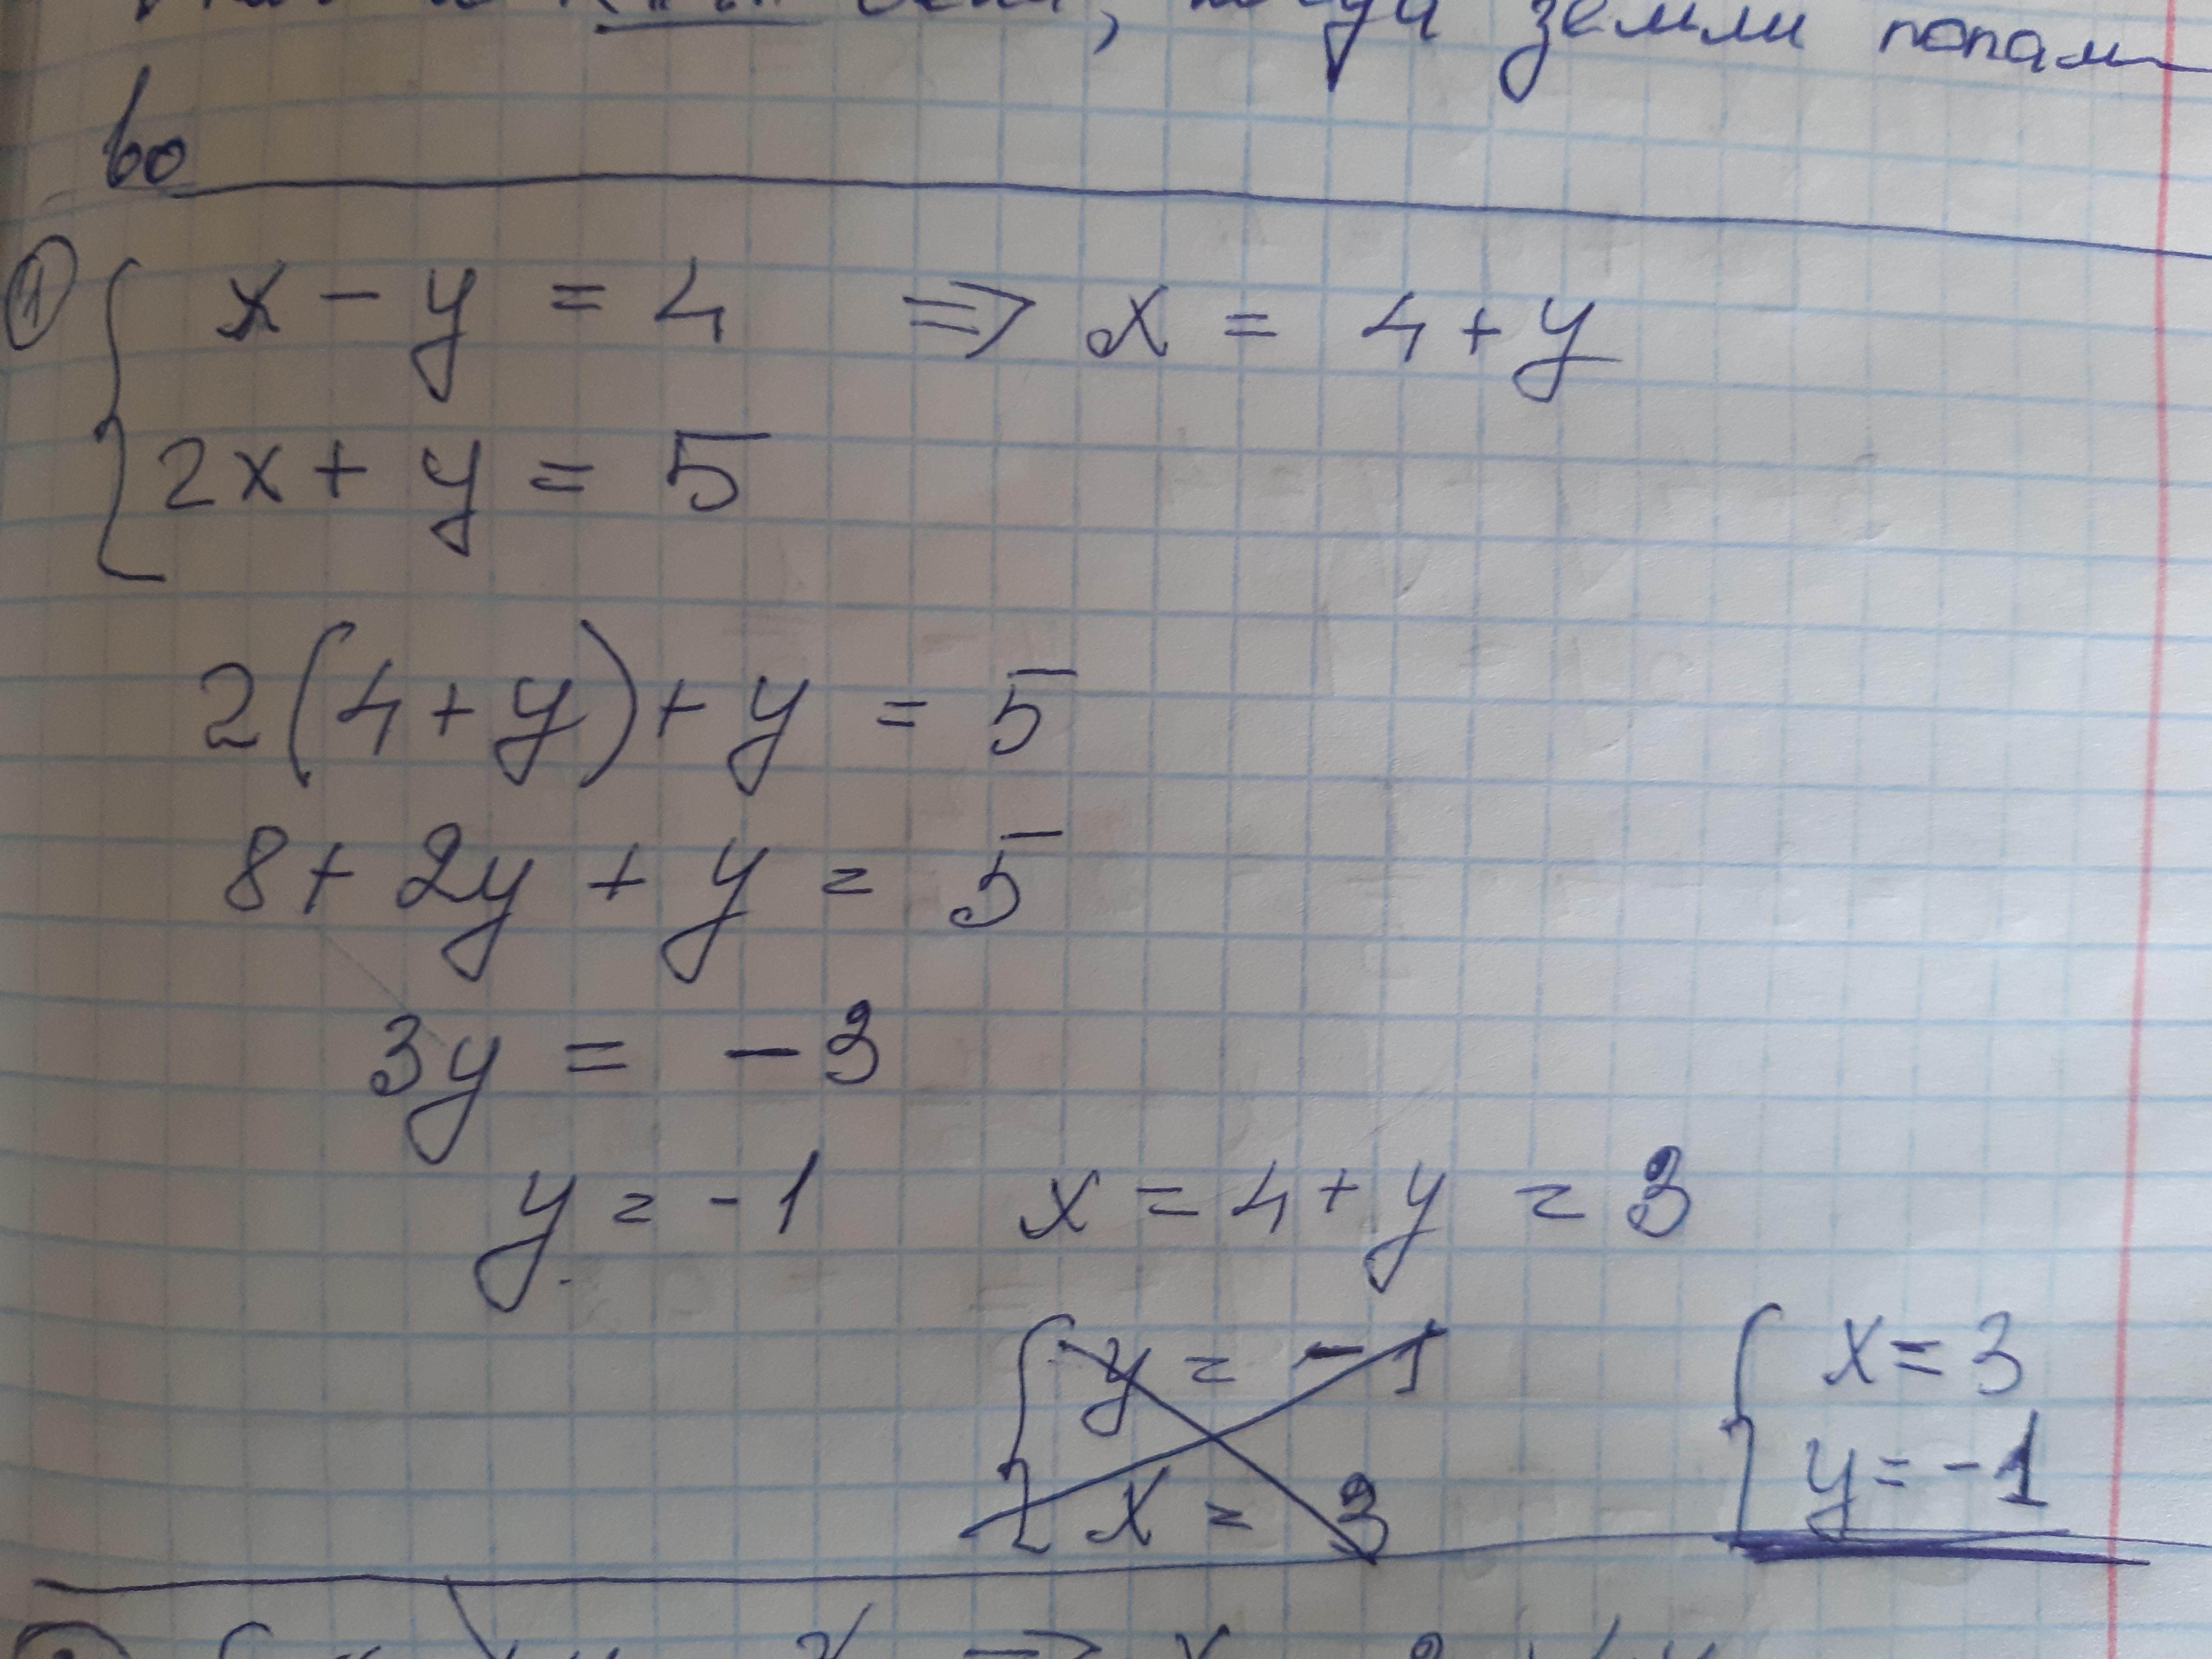 земли попам
во
① { x - y = 4 => x = 4 + y
2x + y = 5
2(4 + y) + y = 5
8 + 2y + y = 5
3y = -3
y = -1 x = 4 + y = 3
{ y = -1 { x = 3
x = 3 y = -1